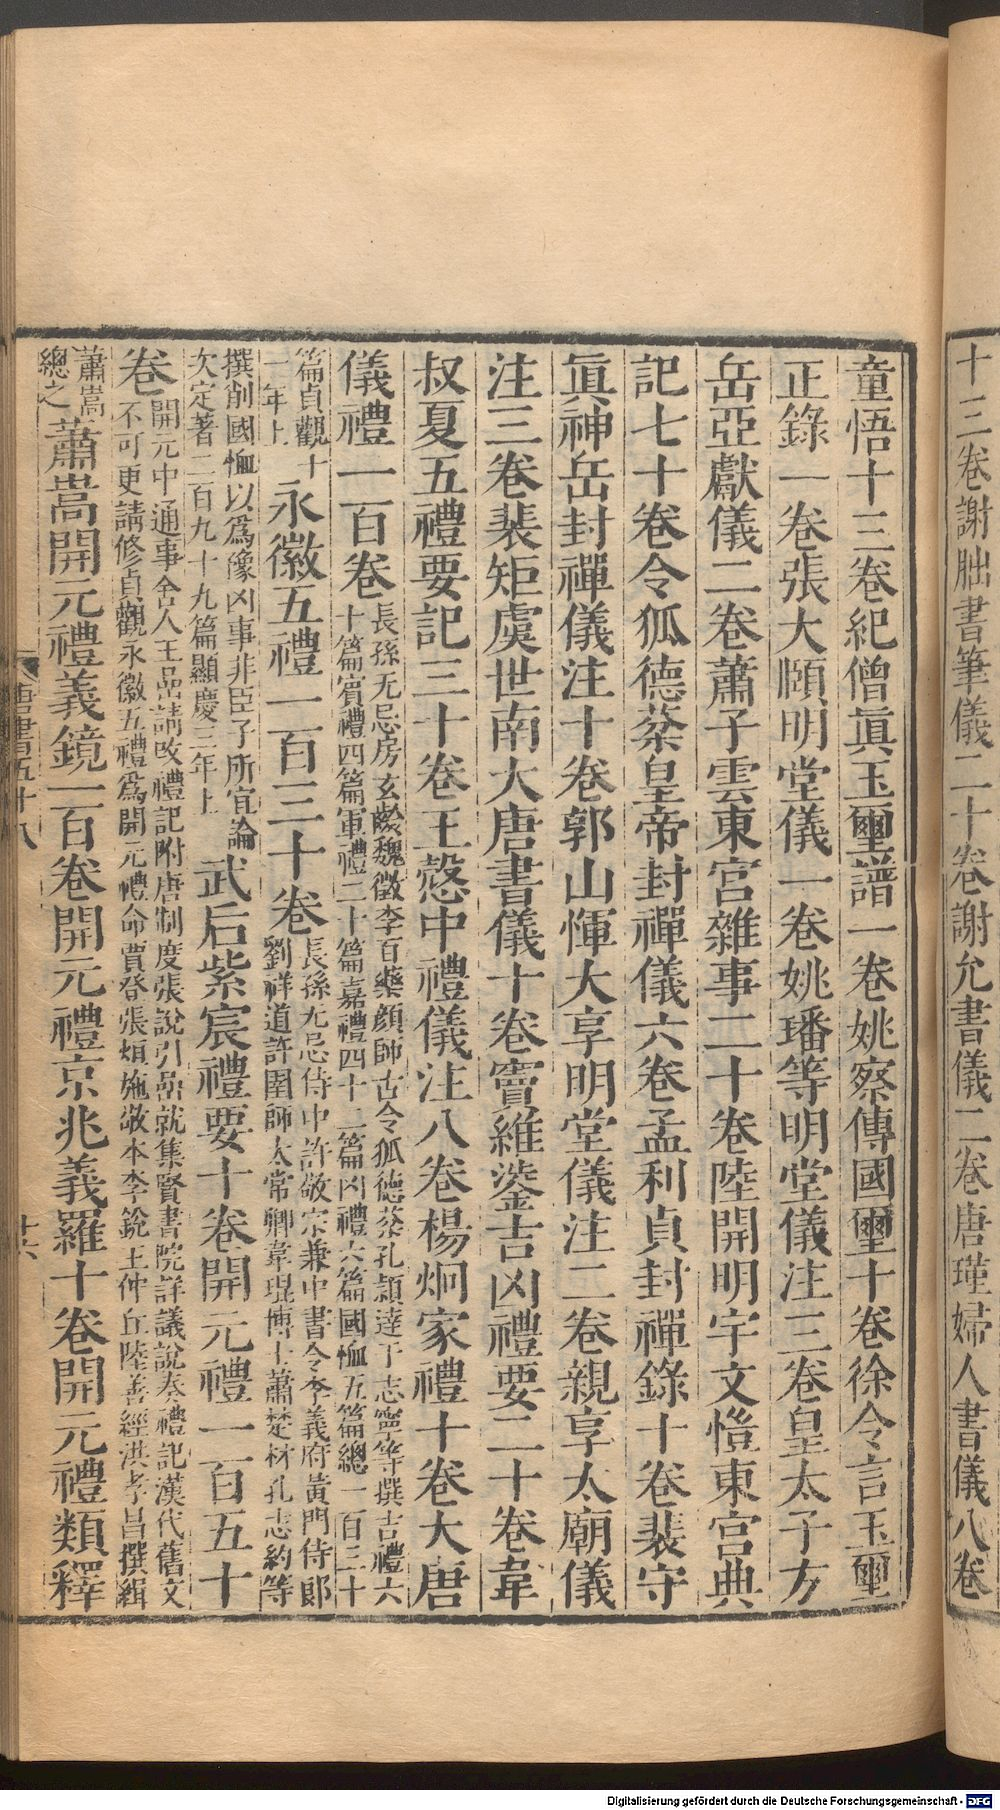 十三卷謝朏書筆儀二十卷謝允書儀二卷唐瑾婦人書儀八卷
童悟十三卷紀僧眞玉璽譜一卷姚察傳國璽十卷徐令言玉璽
正錄一卷張大頤明堂儀一卷姚璠等明堂儀注三卷皇太子方
岳亞獻儀二卷蕭子雲東宮雜事二十卷陸開明宇文愷東宮典
記七十卷令狐德棻皇帝封禪儀六卷孟利貞封禪錄十卷裴守
眞神岳封禪儀注十卷郭山惲大享明堂儀注二卷親享太廟儀
注三卷裴矩虞世南大唐書儀十卷竇維鋈吉凶禮要二十卷韋
叔夏五禮要記三十卷王慤中禮儀注八卷楊炯家禮十卷大唐
儀禮一百卷
長孫无忌房玄齡魏徵李百藥顏師古令狐德棻孔穎達于志寧等撰吉禮六
十篇賓禮四篇軍禮二十篇嘉禮四十二篇凶禮六篇國恤五篇總一百三十
篇貞觀十
一年上
永徽五禮一百三十卷
長孫无忌侍中許敬宗兼中書令李義府黃門侍郎
劉祥道許圉師太常卿韋琨博士蕭楚材孔志約等
撰削國恤以爲豫凶事非臣子所宜論
次定著二百九十九篇顯慶三年上
武后紫宸禮要十卷開元禮一百五十
卷
開元中通事舍人王嵒請改禮記附唐制度張說引嵒就集賢書院詳議說奏禮記漢代舊文
不可更請修貞觀永徽五禮爲開元禮命賈登張烜施敬本李銳王仲丘陸善經洪孝昌撰緝
蕭嵩
總之
蕭嵩開元禮義鏡一百卷開元禮京兆義羅十卷開元禮類釋
唐書五十八
十六
Digitalisierung gefördert durch die Deutsche Forschungsgemeinschaft - DFG